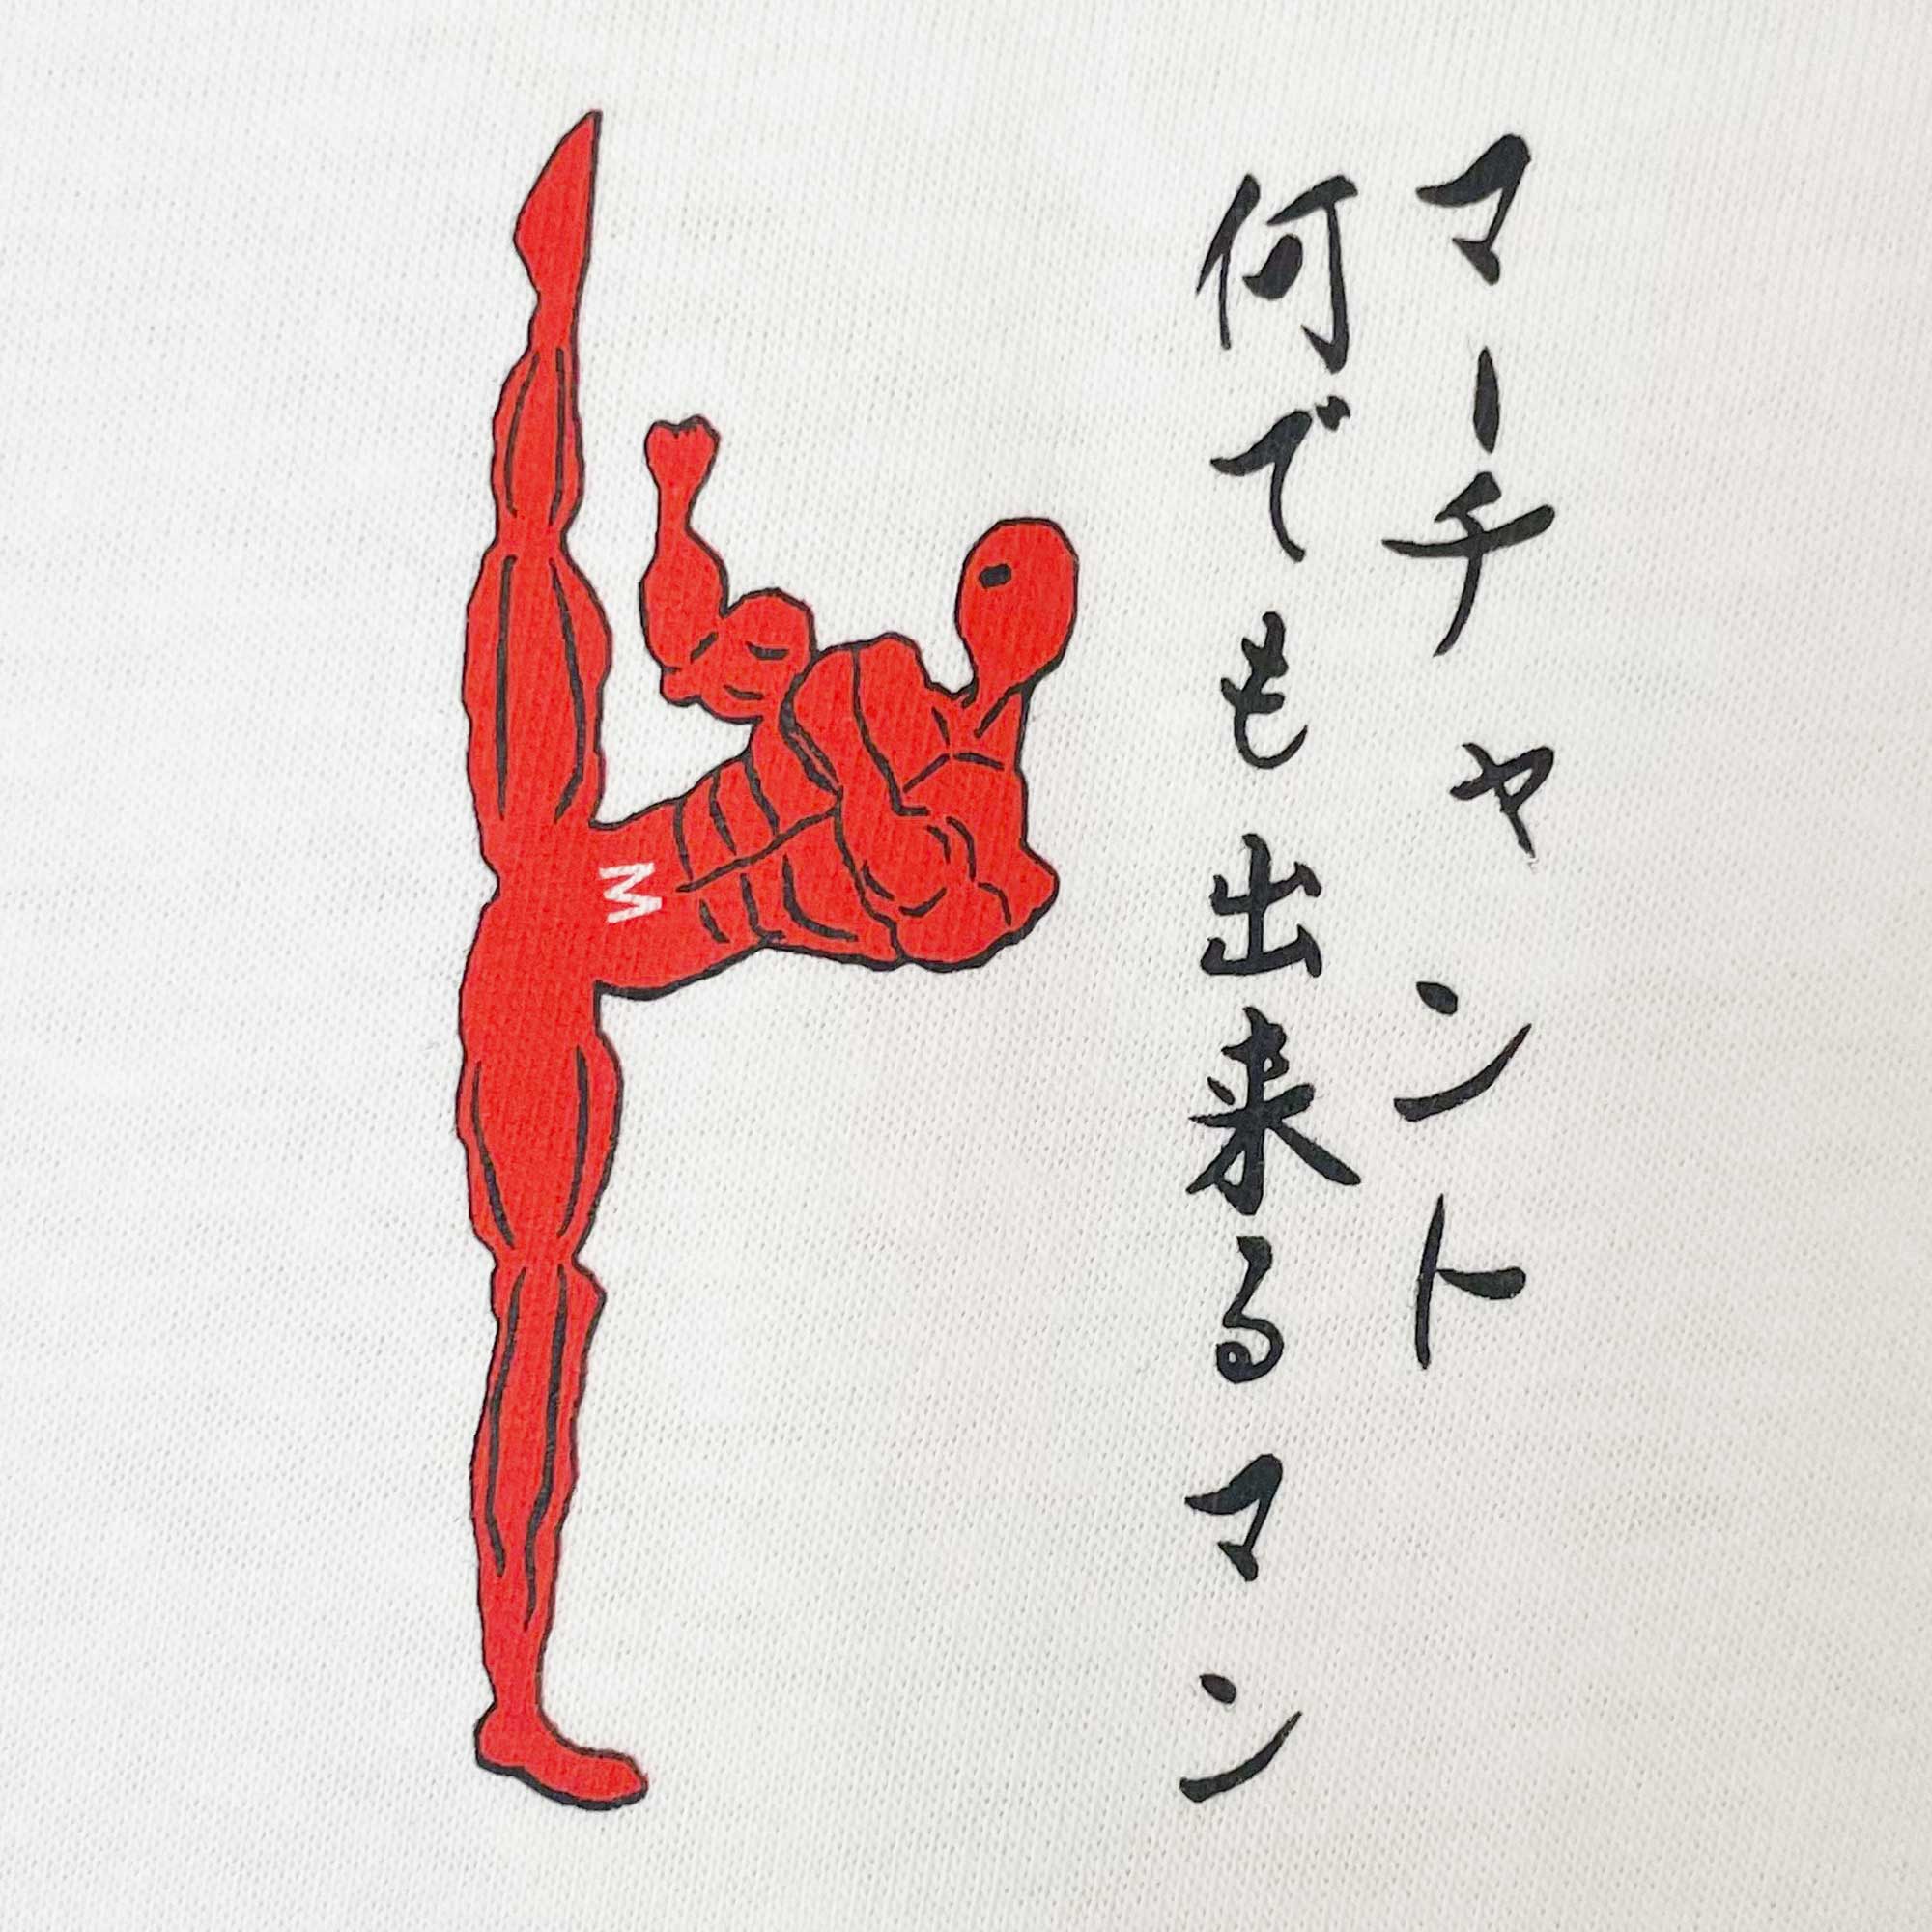 マーチャント
何でも出来るマン
M